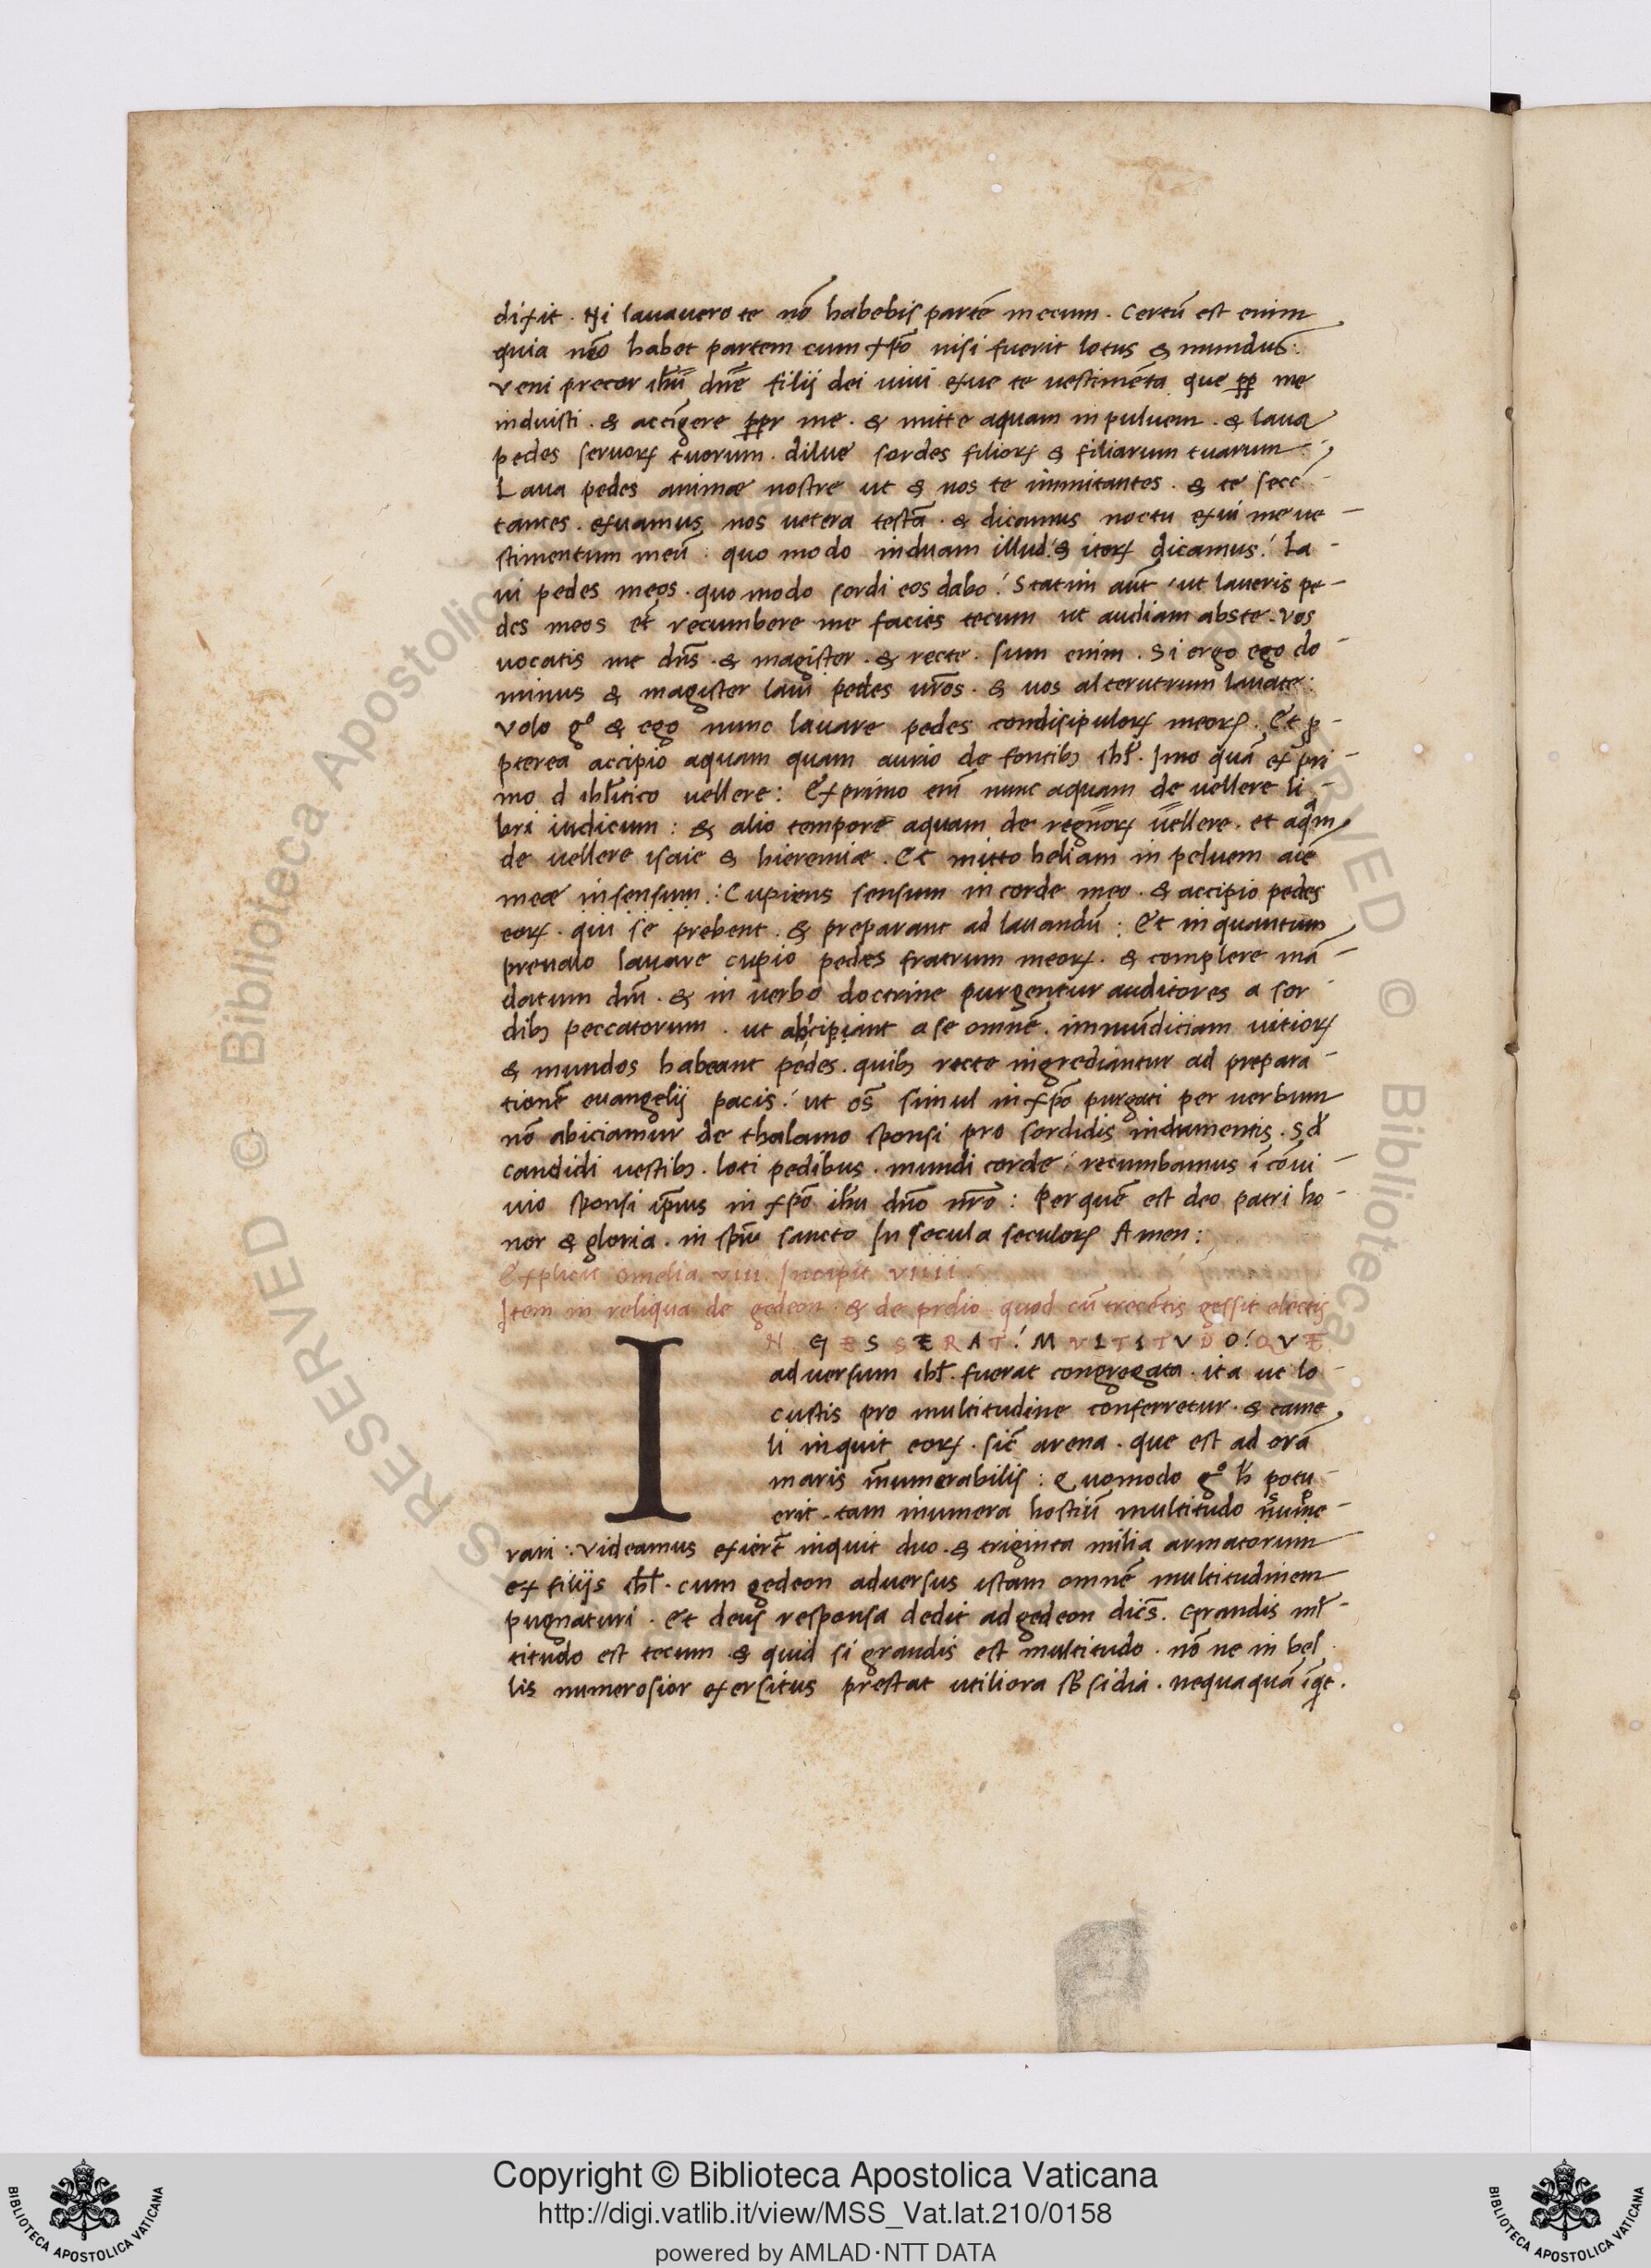 dixit. Ni lauauero te nō habebis partē mecum. Certū est enim
quia nēo habet partem cum xp̄o nisi fuerit lotus & mundus:
veni precor ihū dn̄e filij dei uiui exue te uestimēta que ꝓꝑ me
induisti. & accīgere ꝓpr me. & mitte aquam in puluem. & laua
pedes seruoꝝ tuorum. dilue sordes filioꝝ & filiarum tuarum:
Laua pedes animæ nostre ut & nos te immitantes. & te secc
tantes. exuamus nos uetera testā. & dicamus noctu exui me ue-
stimentum meū: quo modo induam illud: & iteꝝ dicamus: La-
ui pedes meos. quo modo sordi eos dabo: Statim aūt ut laueris pe-
des meos et recumbere me facies tecum ut audiam abste. vos
uocatis me dn̄s. & magister. & recte. sum enim. Si ergo ego do-
minus & magister laui pedes ur̄os. & uos alterutrum lauate:
volo gº & ego nunc lauare pedes condisipuloꝝ meoꝝ. Et ꝓ-
pterea accipio aquam quam aurio de fontibꝫ ihl̄. Imo quā expri-
mo d ihl̄itico uellere: Exprimo em̄ nunc aquam de uellere li-
bri iudicum: & alio tempore aquam de regnoꝝ uellere. et aqm
de uellere isaie & hieremiæ. Et mitto heliam in peluem aīe
meæ insensum: Cupiens sensum in corde meo. & accipio pedes
eoꝝ. qui se prebent. & preparant ad lauandū: Et in quantum
preualo lauare cupio pedes fratrum meoꝝ. & complere mā-
datum dn̄i. & in uerbo doctrine purgentur auditores a sor-
dibꝫ peccatorum. ut abcipiant a se omnē. immūdiciam uitioꝝ
& mundos habeant pedes. quibꝫ recte ingrediantur ad prepara-
tionē euangelij pacis: ut os̄ simul in xp̄o purgati per uerbum
nō abiciamur de thalamo sponsi pro sordidis indumentis. sꝫ
candidi uestibꝫ. loti pedibus. mundi corde: recumbamus ī cōui-
uio sponsi ip̄ius in xp̄o ihū dn̄o nr̄o: Per quē est deo patri ho-
nor & gloria. in sp̄u sancto In secula seculoꝝ Amen:
Explicit omelia. viii. Incipit viiii.
Item in reliqua de gedeon. & de prelio quod cū trecētis gessit electis
IN GESSERAT: MVLTITVDO: QVE
aduersum ihl̄. fuerat congregata. ita ut lo-
custis pro multitudine conferretur. & came
li inquit eoꝝ. sic̄ arena. que est ad orā
maris īnumerabilis: Quomodo gº h̄ potu-
erit. tam inumera hostiū multitudo nume-
rari: videamus exier̄t inquit duo. & triginta milia armatorum
ex filijs ihl̄. cum gedeon aduersus istam omnē multitudinem
pugnaturi. Et deus responsa dedit ad gedeon dicēs. Grandis ml̄-
titudo est tecum & quid si grandis est multitudo. nō ne in bel
lis numerosior exersitus prestat utiliora sb̄sidia. nequaquā īqt.
Copyright © Biblioteca Apostolica Vaticana
http://digi.vatlib.it/view/MSS_Vat.lat.210/0158
powered by AMLAD·NTT DATA
BIBLIOTECA APOSTOLICA VATICANA
BIBLIOTECA APOSTOLICA VATICANA